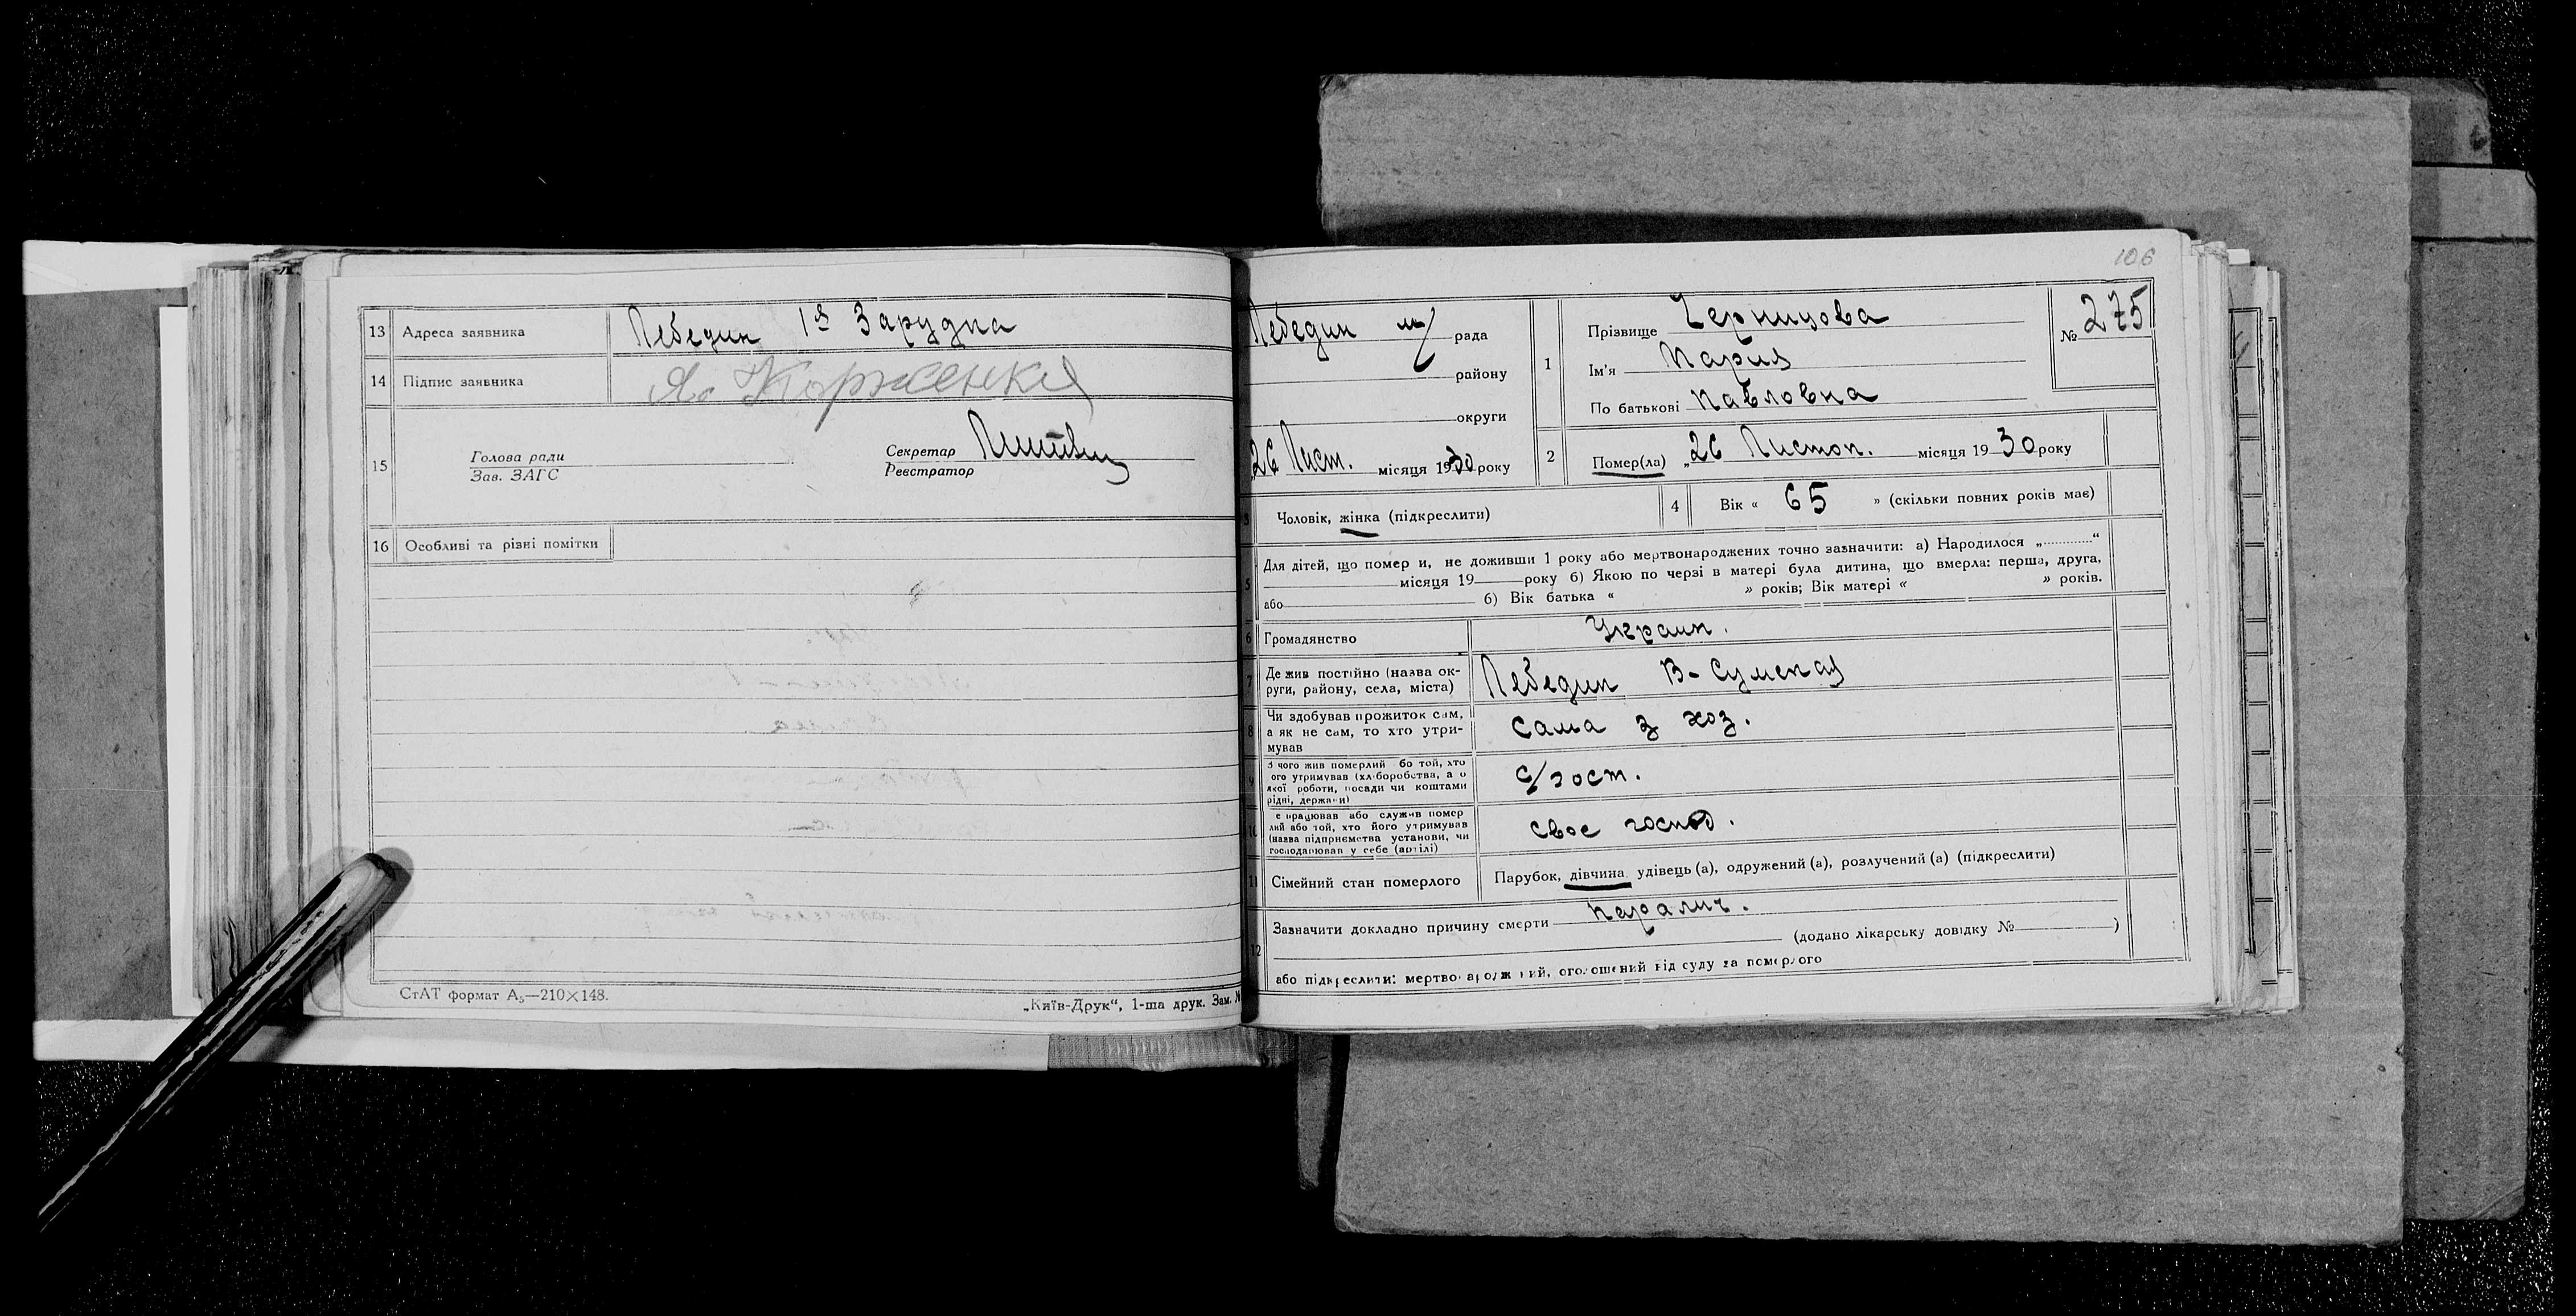 13 Адреса заявника Лебедин 1я Зарудка
14 Підпис заявника Як Корженки
15 Голова ради
Зав. ЗАГС
Секретар
Реєстратор
16 Особливі та різні помітки
СтАТ формат А₅—210×148.
„Київ-Друк“, 1-ша друк. Зам. №
106
Лебедин м/ рада
району
округи
26 Лист. місяця 1930 року
1 Прізвище Черницова
Ім'я Мария
По батькові Павловна
№ 275
2 Помер(ла) „26 Листоп. місяця 1930 року
3 Чоловік, жінка (підкреслити)
4 Вік « 65 » (скільки повних років має)
5 Для дітей, що помер и, не доживши 1 року або мертвонароджених точно зазначити: а) Народилося „............“
місяця 19 року б) Якою по черзі в матері була дитина, що вмерла: перша, друга,
або б) Вік батька « » років; Вік матері « » років.
6 Громадянство Украин.
7 Де жив постійно (назва ок-
руги, району, села, міста) Лебедин В-Сумская
8 Чи здобував прожиток сам,
а як не сам, то хто утри-
мував сама з хоз.
9 З чого жив померлий бо той, хто
ого утримував (хліборобства, а о
якої роботи, посади чи коштами
рідні, держави) с/гост.
10 е працював або служив помер
лий або той, хто його утримував
(назва підприємства установи, чи
господарював у себе (артілі) своє господ.
11 Сімейний стан померлого Парубок, дівчина, удівець (а), одружений (а), розлучений (а) (підкреслити)
12 Зазначити докладно причину смерти паралич.
(додано лікарську довідку № )
або підкреслити: мертвонароджений, оголошений від суду за померлого